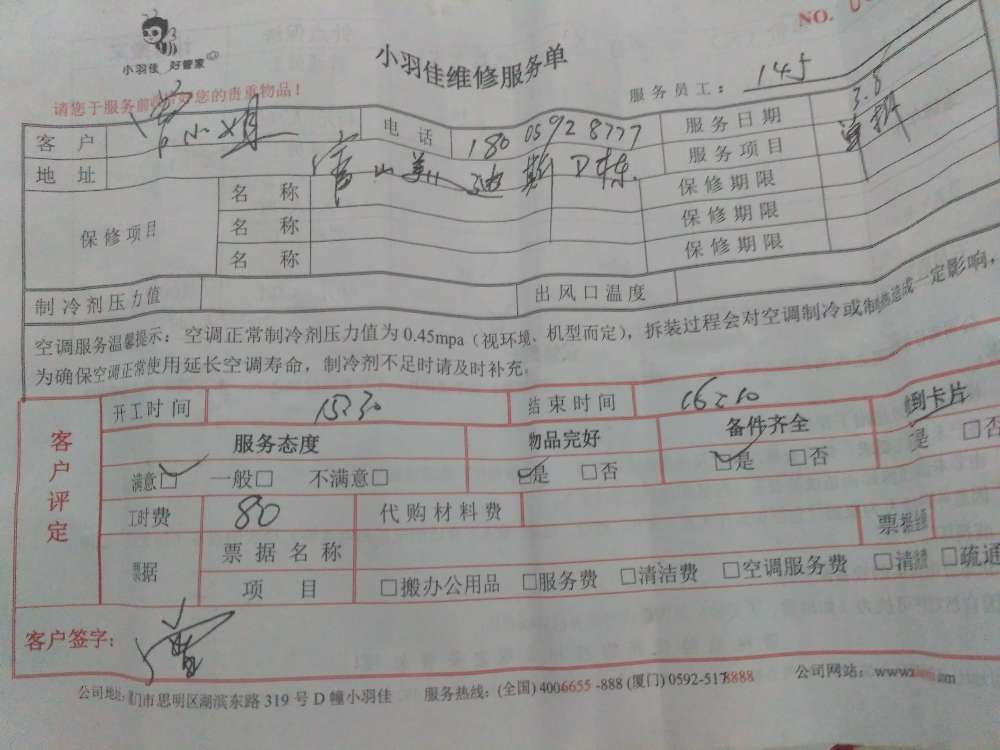 NO. 0
小羽佳 好管家
小羽佳维修服务单
请您于服务前收好您的贵重物品！
服务员工：145
客户 小姐 电话 18005928777 服务日期 3.8
地址 富山美迪斯D栋 服务项目
保修项目 名称 保修期限
名称 保修期限
名称 保修期限
制冷剂压力值 出风口温度
空调服务温馨提示：空调正常制冷剂压力值为0.45mpa（视环境、机型而定），拆装过程会对空调制冷或制热造成一定影响，
为确保空调正常使用延长空调寿命，制冷剂不足时请及时补充。
客户评定
开工时间 15:30 结束时间 16:10
服务态度 物品完好 备件齐全 卡片
满意□ 一般□ 不满意□ □是 □否 □是 □否 是 □否
工时费 80 代购材料费 票据
票据 票据名称
项目 □搬办公用品 □服务费 □清洁费 □空调服务费 □清 □疏通
客户签字：
公司地址:厦门市思明区湖滨东路319号D幢小羽佳 服务热线：(全国) 4006655-888 (厦门) 0592-5178888 公司网站：www